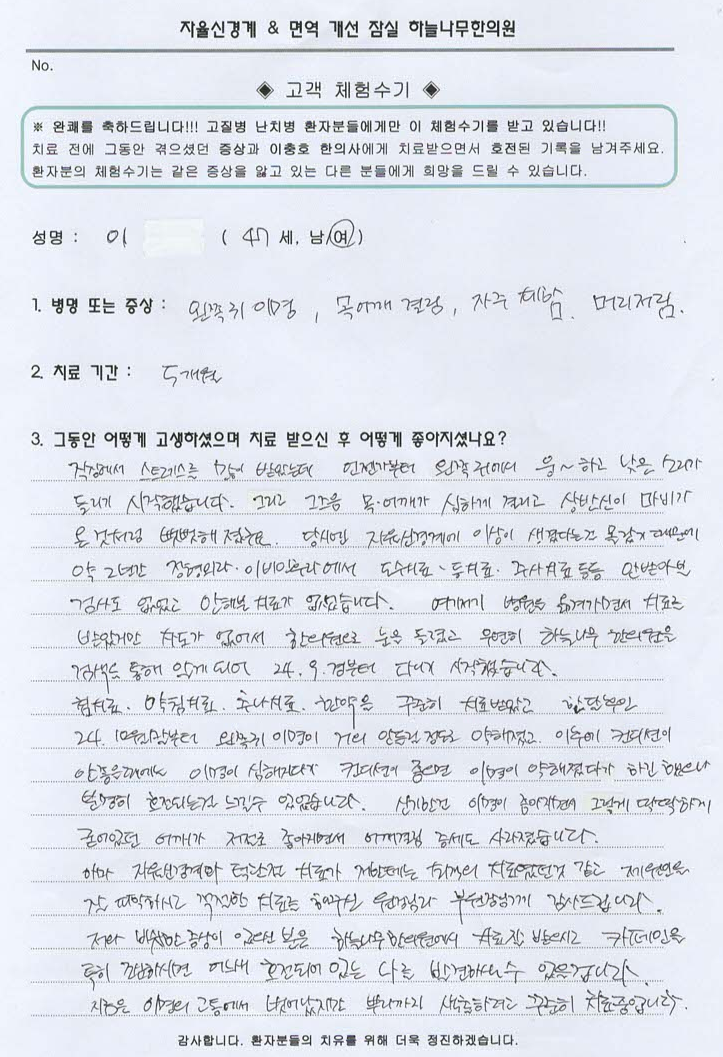 자율신경계 & 면역 개선 잠실 하늘나무한의원
No.
◈ 고객 체험수기 ◈
※ 완쾌를 축하드립니다!!! 고질병 난치병 환자분들에게만 이 체험수기를 받고 있습니다!!
치료 전에 그동안 겪으셨던 증상과 이충호 한의사에게 치료받으면서 호전된 기록을 남겨주세요.
환자분의 체험수기는 같은 증상을 앓고 있는 다른 분들에게 희망을 드릴 수 있습니다.
성명 : 이 ( 47 세, 남/여 )
1. 병명 또는 증상 : 왼쪽귀 이명, 목어깨 결림, 자주 체함. 머리저림.
2. 치료 기간 : 5개월
3. 그동안 어떻게 고생하셨으며 치료 받으신 후 어떻게 좋아지셨나요?
직장에서 스트레스를 많이 받았는데 언젠가부터 왼쪽 귀에서 웅~하고 낮은 소리가
들리기 시작했습니다. 그리고 그즈음 목·어깨가 심하게 결리고 상반신이 마비가
온것처럼 뻣뻣해 졌어요. 당시엔 자율신경계에 이상이 생겼다는걸 몰랐기 때문에
약 2년간 정형외과·이비인후과에서 도수치료·통치료·주사치료 등등 안받아본
검사도 없었고 안해본 치료가 없었습니다. 여기저기 병원을 옮겨가면서 치료를
받았지만 차도가 없어서 한의원으로 눈을 돌렸고 우연히 하늘나무 한의원을
검색을 통해 알게 되어 24. 9. 경부터 다니기 시작했습니다.
침치료·약침치료·추나치료·한약을 꾸준히 치료받았고 한달후인
24. 10월말부터 왼쪽귀 이명이 거의 안들릴 정도로 약해졌고. 이후에 컨디션이
안좋을때에는 이명이 심해지다가 컨디션이 좋으면 이명이 약해졌다가 하긴 했으나
분명히 호전되는걸 느낄수 있었습니다. 신기한건 이명이 좋아지면서 그렇게 딱딱하게
굳어있던 어깨가 저절로 좋아지면서 어깨결림 증세도 사라졌습니다.
아마 자율신경계와 턱관절 치료가 저한테는 최적의 치료였던것 같고 제 원인을
잘 파악하시고 적절한 치료를 해주신 원장님과 부원장님께 감사드립니다.
저와 비슷한 증상이 있으신 분은 하늘나무한의원에서 치료 잘 받으시고 카페인을
특히 조심하시면 어느새 호전되어 있는 나를 발견하실 수 있을겁니다.
지금은 이명의 고통에서 벗어났지만 뿌리까지 생각하려고 꾸준히 치료중입니다.
감사합니다. 환자분들의 치유를 위해 더욱 정진하겠습니다.